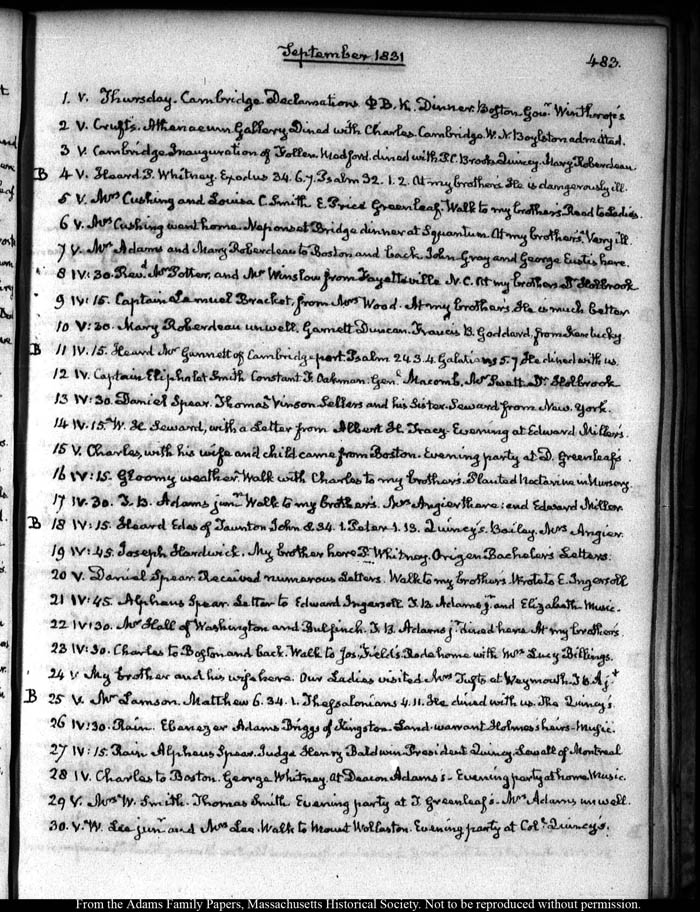 September 1831
483.
1. V. Thursday. Cambridge Declamations Φ B. K. Dinner. Boston. Govr. Winthrop's
2 V. Crufts. Athenaeum Gallery. Dined with Charles. Cambridge. W. N. Boylston admitted.
3 V. Cambridge. Inauguration of Follen. Medford. dined with P. C. Brooks Quincy. Mary Roberdeau
B 4 V. Heard P. Whitney. Exodus 34. 6.7. Psalm 32. 1. 2. At my brothers. He is dangerously ill.
5 V. Mrs Cushing and Louisa C. Smith E. Price Greenleaf. Walk to my brother's Read to Ladies.
6 V. Mrs Cushing went home. Neponset Bridge dinner at Squantum. At my brother's. Very ill.
7 V. Mrs Adams and Mary Roberdeau to Boston and back. John Gray and George Eustis here.
8 IV: 30. Revd. Mr Potter, and Mr Winslow from Fayetteville N. C. At my brothers Dr Holbrook
9 IV: 15. Captain Lemuel Bracket, from Mrs Wood. At my brother's. He is much better
10 V: 30. Mary Roberdeau unwell. Garnett Duncan. Francis B. Goddard, from Kentucky
B 11 IV. 15. Heard Mr Gannett of Cambridgeport. Psalm 24 3. 4. Galatians 5. 7 He dined with us.
12 IV. Captain Eliphalet Smith Constant F. Oakman. Genl. Macomb. Mr Swett. Dr Holbrook
13 IV: 30. Daniel Spear. Thomas Vinson Sellers and his Sister. Seward from New York.
14 IV. 15. W. H. Seward, with a Letter from Albert H. Tracy. Evening at Edward Miller's.
15 V. Charles, with his wife and child came from Boston. Evening party at D. Greenleaf's
16 IV: 15. Gloomy weather. Walk with Charles to my brother's. Planted Nectarine in Nursery
17 IV. 30. T. B. Adams junr. Walk to my brother's. Mrs Angier there: and Edward Miller
B 18 IV: 15. Heard Edes of Taunton John 8. 34. 1. Peter 1. 13. Quincy's. Bailey. Mrs Angier.
19 IV: 45. Joseph Hardwick. My brother here P. Whitney. Origen Bachelers Letters.
20 V. Daniel Spear. Received numerous Letters. Walk to my brothers. Wrote to E. Ingersoll
21 IV: 45. Alpheus Spear. Letter to Edward Ingersoll. T. B. Adams jr. and Elizabeth. Music.
22 IV: 30. Mr Hall of Washington and Bulfinch. T. B. Adams jr. dined here. At my brother's
23 IV: 30. Charles to Boston and back. Walk to Jos. Field's. Rode home with Mrs Lucy Billings.
24 V My brother and his wife here. Our Ladies visited Mrs Tufts at Weymouth.
B 25 V. Mr Lamson. Matthew 6. 34. 1. Thessalonians 4. 11. He dined with us. The Quincy's
26 IV: 30. Rain. Ebenezer Adams Briggs of Kingston. Land-warrant Holmes's heirs. Music.
27 IV: 15. Rain Alpheus Spear. Judge Henry Baldwin. President Quincy. Sewall of Montreal
28 IV. Charles to Boston. George Whitney. At Deacon Adams's. Evening party at home. Music.
29 V. Mrs W. Smith. Thomas Smith Evening party at T. Greenleaf's. Mrs Adams unwell.
30. V. W. Lee junr. and Mrs Lee. Walk to Mount Wollaston. Evening party at Coll. Quincy's.
From the Adams Family Papers, Massachusetts Historical Society. Not to be reproduced without permission.